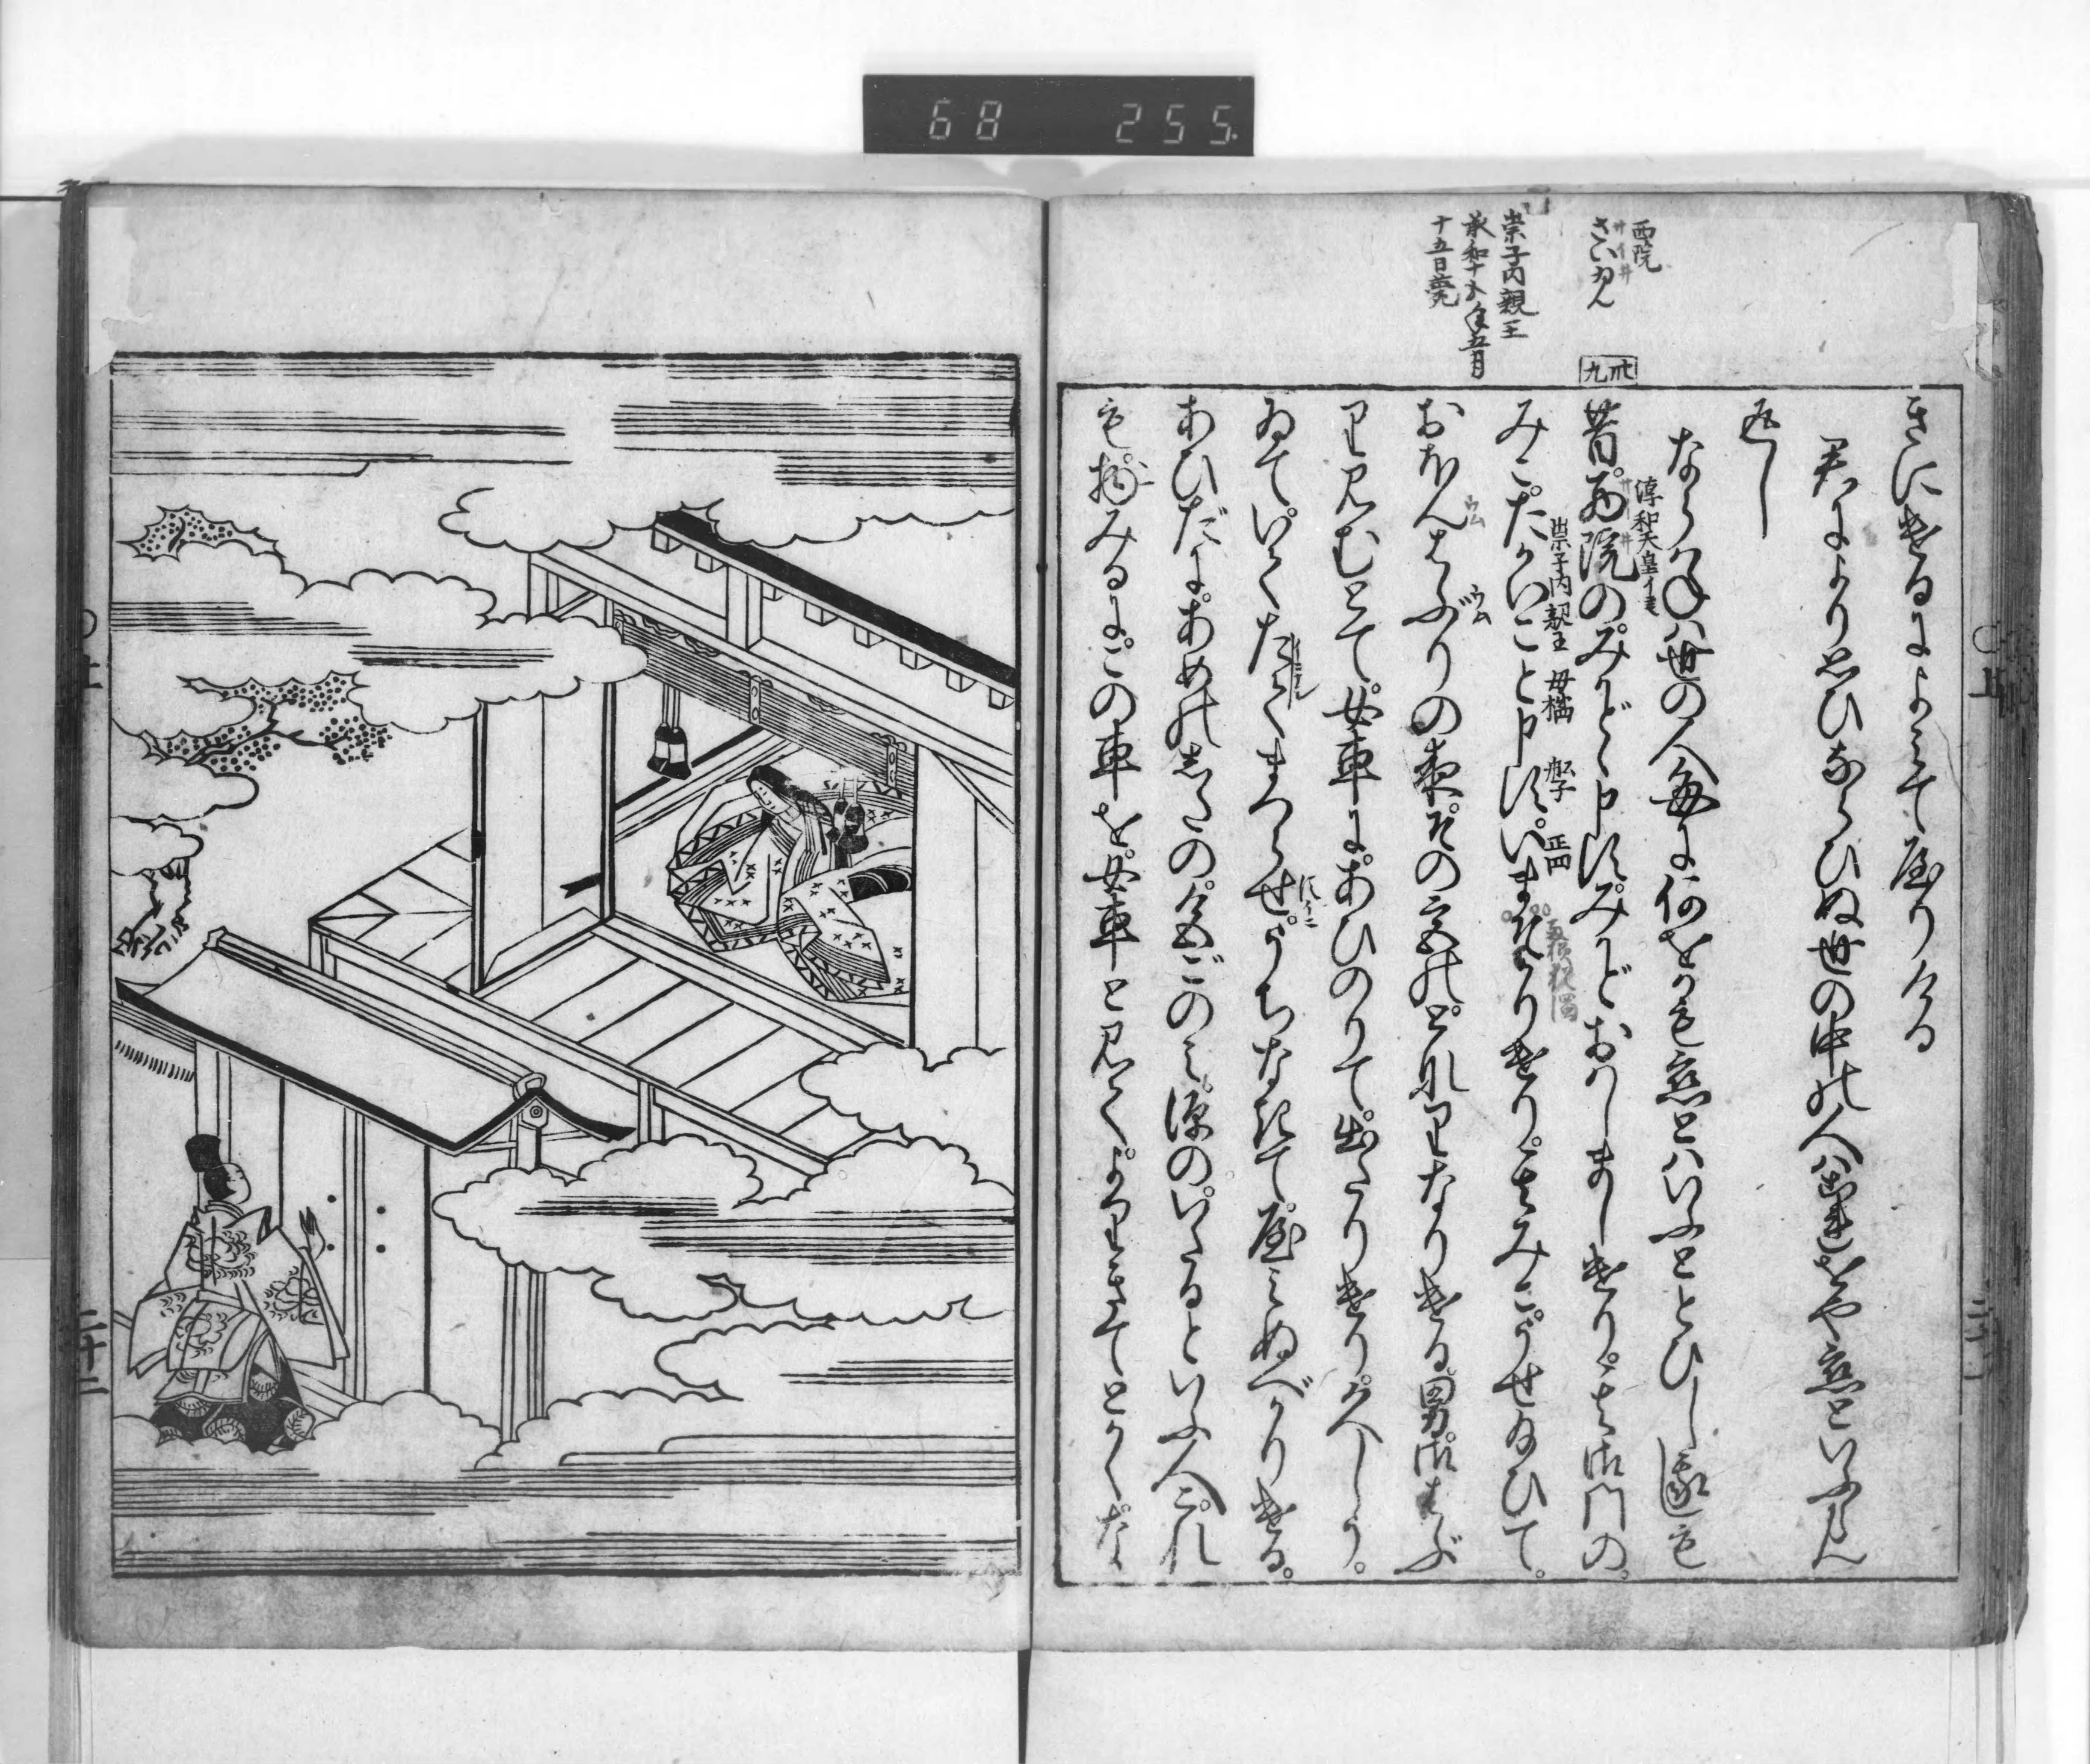 68 255
西院
サイ井
さいゐん
崇子内親王
承和十五年五月
十五日薨
卅九
きにけるによみてやりける
君により思ひならひぬ世の中の人は是をや恋といふらん
返し
ならはねは世の人毎に何をかも恋とはいふととひし我も
昔西院のみかどゝ申すみかどおはしましけり其御門の
淳和天皇
みこたかいこと申すいまそかりけり其みこうせ給ひて
崇子内親王 母橘 船子 正四
おほんはぶりの夜その宮のとなりなりける男御はぶ
り見むとて女車にあひのりて出たりけり久しう
ゐていてたてまつらせうちなきてやみぬべかりける
あひだにあめのしたの色ごのみ源のいたるといふ人これ
も物みるにこの車を女車と見てよりきてとかくな
二十二